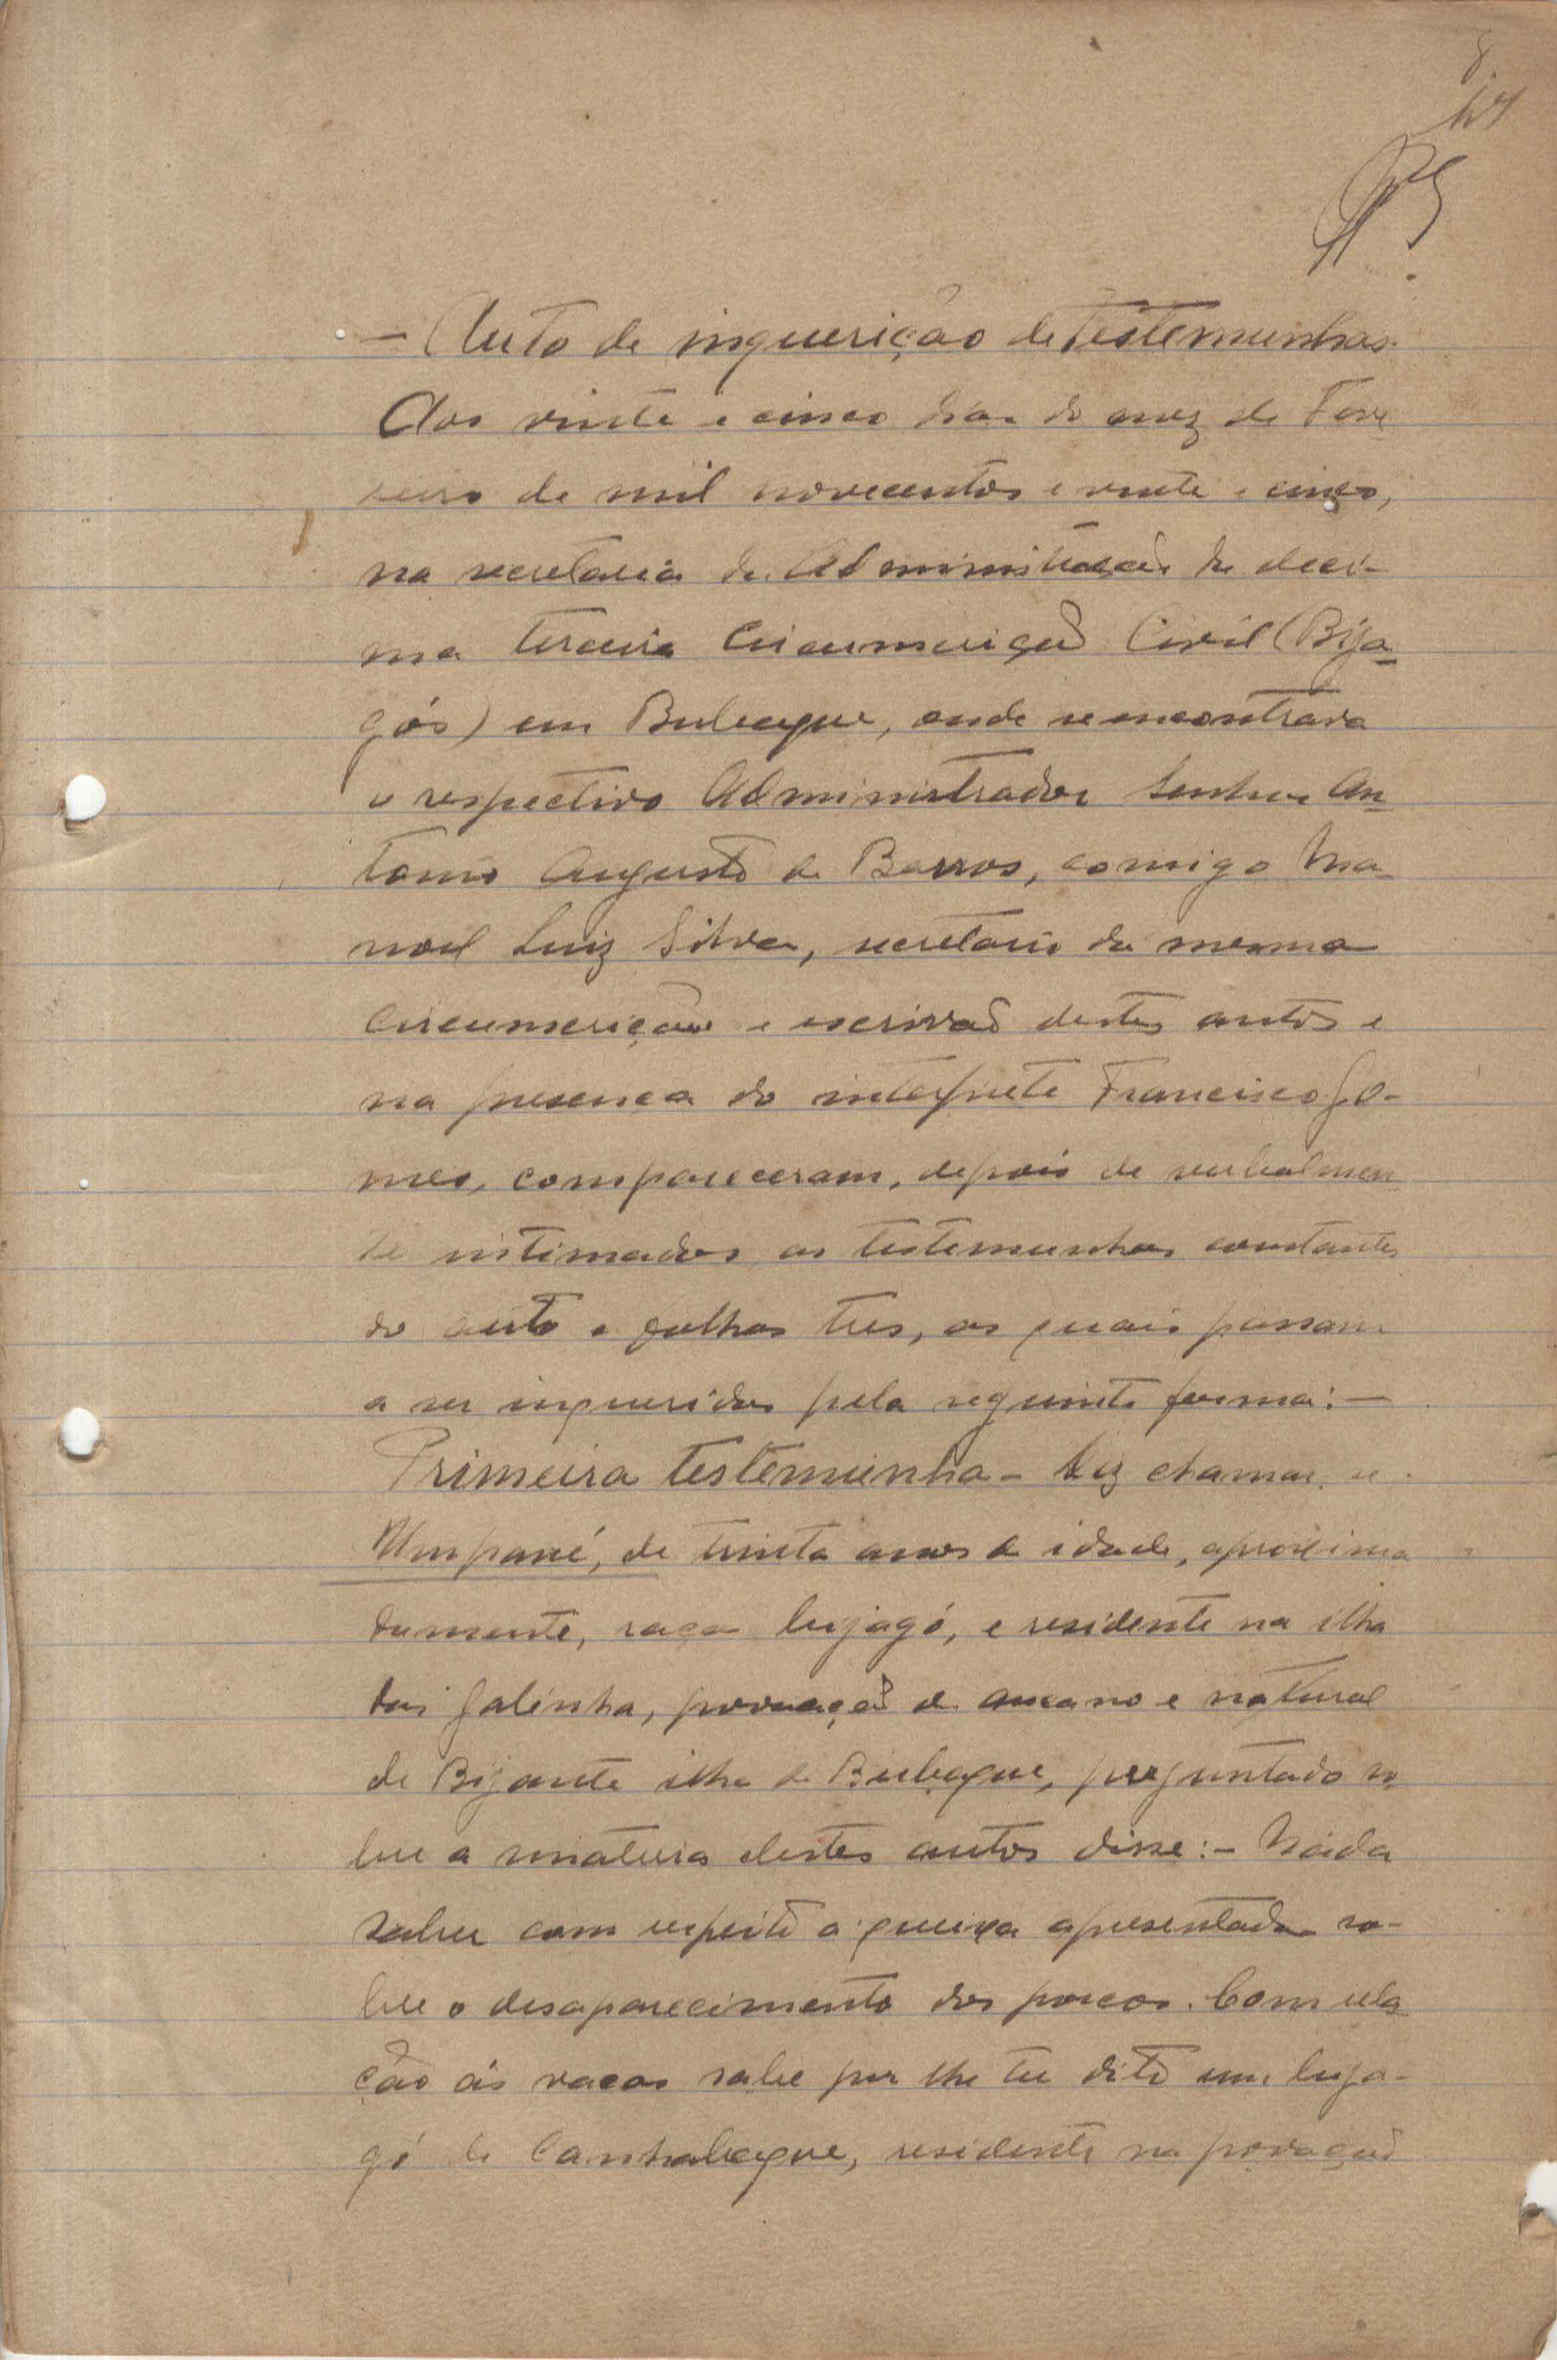 8
- Auto de inquerição de testemunhas.
Aos vinte e cinco dias do mez de Feve
reiro de mil novecentos e vinte e cinco,
na secretaria da Administração da deci-
ma terceira Circumscrição Civil (Bija-
gós) em Bubaque, onde se encontrava
o respectivo Administrador Senhor An-
tonio Augusto de Barros, comigo Ma-
noel Luiz Silva, secretario da mesma
Circumscrição e escrivão destes autos e
na presença do interprete Francisco Go-
mes, compareceram, depois de verbalmen
te intimados as testemunhas constantes
do auto a folhas tres, as quais passam
a ser inqueridas pela seguinte forma: -
Primeira testemunha - Diz chamar-se
Umpané, de trinta anos de idade, aproxima
damente, raça bijagó, e residente na ilha
das Galinha, povoação de Ancano e natural
de Bijante ilha de Bubaque, perguntado so
bre a materia destes autos disse: - Nada
saber com respeito a queixa apresentada so-
bre o desaparecimento dos porcos. Com rela
ção ás vacas sabe por lhe ter dito um bija-
gó de Canhabaque, residente na povoação